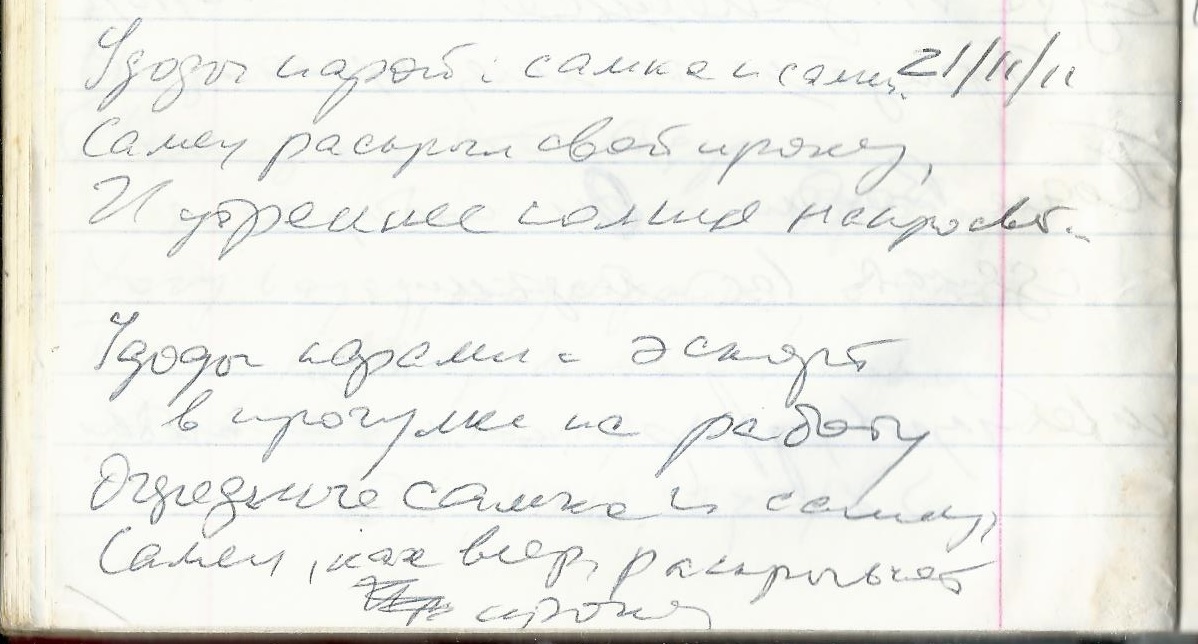 Удоды парой: самка и самец. 21/11/11
Самец раскрыл свой ирокез,
И утреннее солнце на просвет..
Удоды парами - эскорт
в прогулке на работу
самка и самец,
Самец, как веер, раскрывает
ирокез